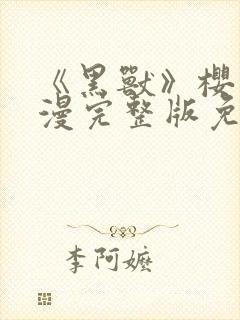 《黑兽》樱
漫完整版免
李阿嬷